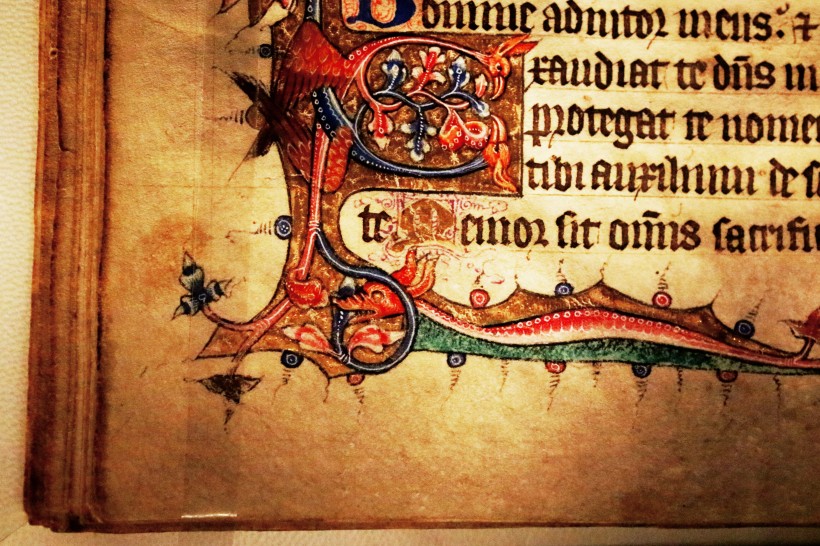 Domine adiutor meus: ⁊
Exaudiat te dn̄s in
protegat te nomen
tibi auxilium de s
te Memor sit om̄is sacrifi